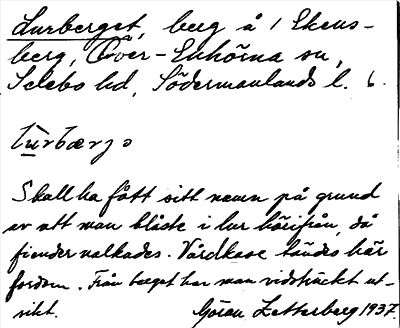 Lurberget, berg å 1 Ekens-
berg, Över-Enhörna sn,
Selebo hd, Södermanlands l. 6.
lu̲rbærjə
Skall ha fått sitt namn på grund
av att man blåste i lur härifrån, då
fiender nalkades. Vårdkase tändes här
fordom. Från berget har man vidsträckt ut-
sikt. Göran Zetterberg 1937.